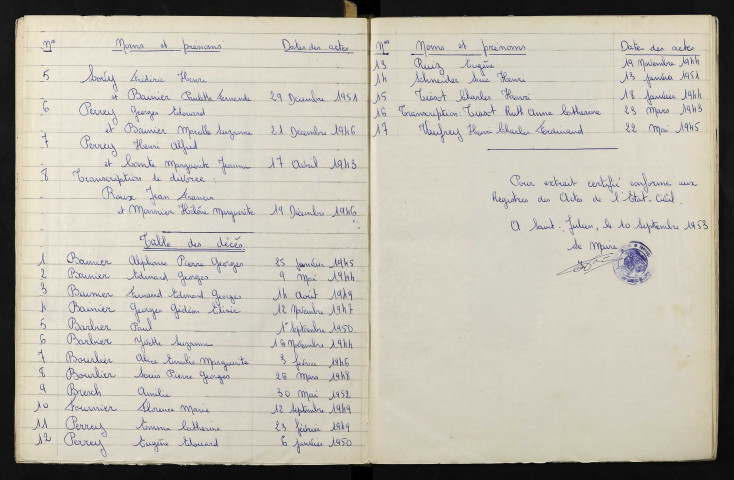 Nos Noms et prénoms Dates des actes
5 Frédéric Henri
et Bainier Paulette Fernande 29 Décembre 1951
6 Perrey Georges Edouard
et Bainier Marcelle Suzanne 21 Décembre 1946
7 Perrey Henri Alfred
et Comte Marguerite Jeanne 17 Avril 1943
8 Transcription de divorce :
Roux Jean Francis
et Marmier Hélène Marguerite 19 Décembre 1946
Table des décés
1 Bainier Alphonse Pierre Georges 25 janvier 1945
2 Bainier Edouard Georges 9 Mai 1944
3 Bainier Fernand Edouard Georges 14 Août 1949
4 Bainier Georges Gédéon 12 Novembre 1947
5 Barbier Paul 1er Septembre 1950
6 Barbier Suzanne 16 Novembre 1944
7 Bourlier Emilie Marguerite 3 février 1946
8 Bourlier Louis Pierre Georges 26 Mars 1948
9 Bresch Amélie 30 Mai 1952
10 Fournier Florence Marie 12 Septembre 1949
11 Perrey Emma Catherine 23 février 1949
12 Perrey Eugène Edouard 6 janvier 1950
Nos Noms et prénoms Dates des actes
13 Ruiz Eugène 19 Novembre 1944
14 Schneider Henri 13 janvier 1951
15 Tissot Charles Henri 18 janvier 1944
16 Transcription: Tissot Ruth Anne Catherine 23 Mars 1943
17 Henri Charles Ferdinand 22 Mai 1945
Pour extrait certifié conforme aux
Registres des Actes de l'Etat-Civil.
A Saint-Julien, le 10 Septembre 1953
Le Maire